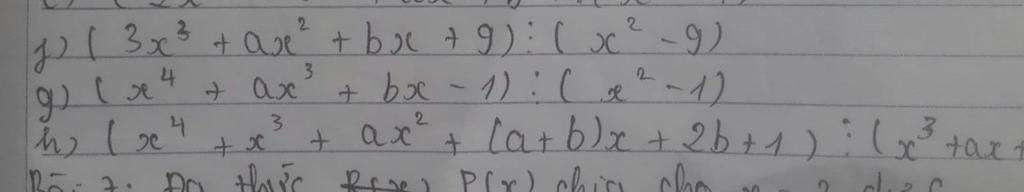 f) (3x³ + ax² + bx + 9) : (x² - 9)
g) (x⁴ + ax³ + bx - 1) : (x² - 1)
h) (x⁴ + x³ + ax² + (a+b)x + 2b + 1) : (x³ + ax +
7. Đa thức P(x) chia cho